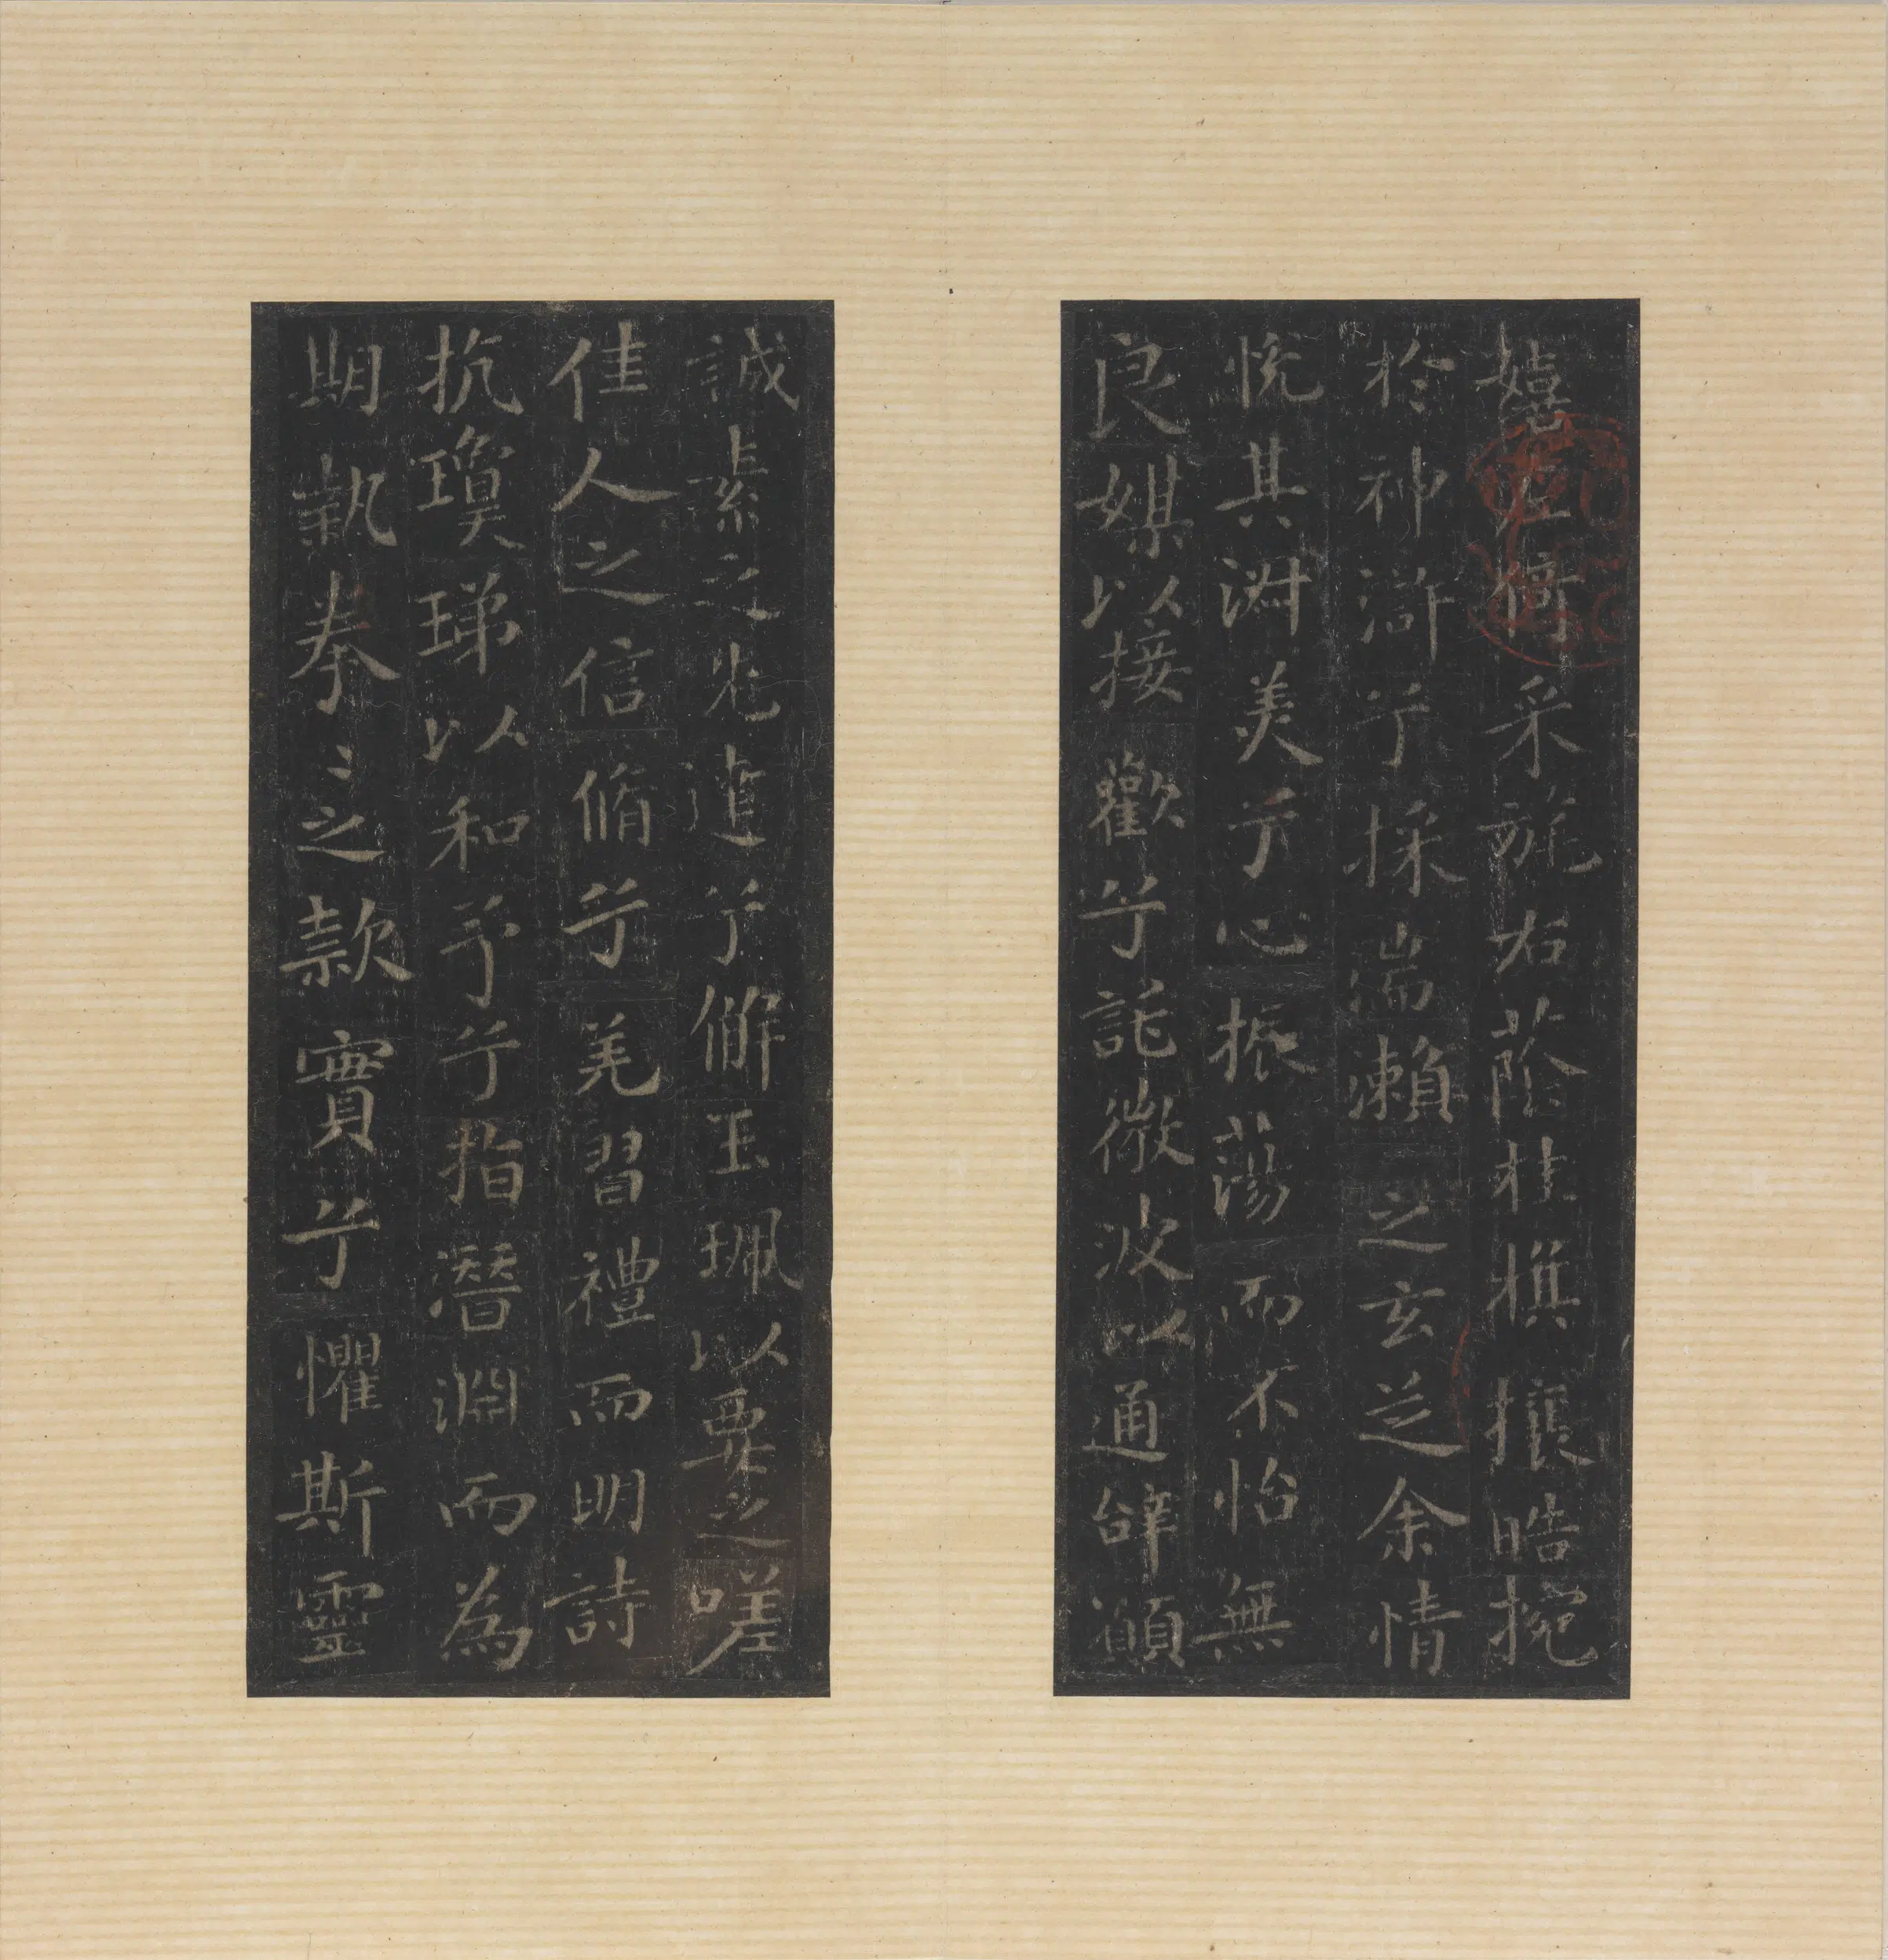 嬉左倚采旄右蔭桂旗攘皓捥
於神滸兮採湍瀨之玄芝余情
悅其淑美兮心振蕩而不怡無
良媒以接歡兮託微波以通辭願
誠素之先達兮解玉珮以要之嗟
佳人之信脩兮羌習禮而明詩
抗瓊珶以和予兮指潛淵而為
期執拳〻之款實兮懼斯靈